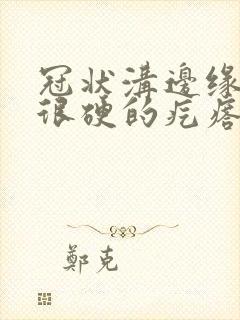 冠状溝邊缘
很硬的疙瘩
鄭克